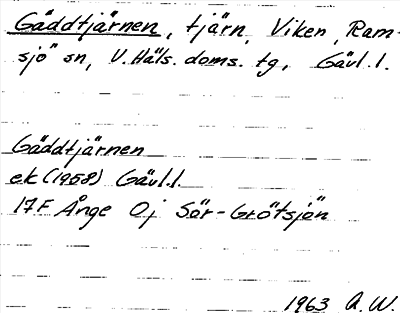 Gäddtjärnen, tjärn, Viken, Ram-
sjö sn, V. Häls. doms. tg, Gävl. l.
Gäddtjärnen
ek (1958) Gävl. l.
17F Ånge 0j Sör-Grötsjön
1963 A.W.